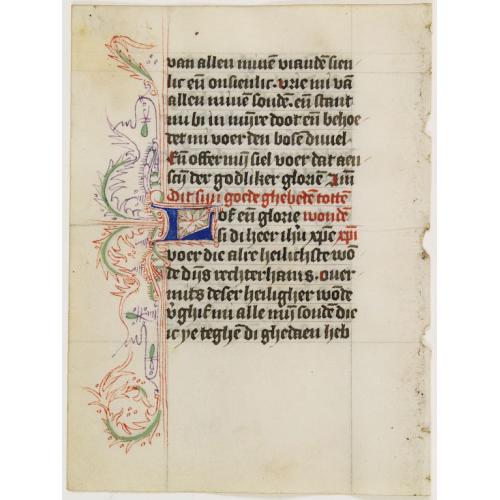 van allen minen vianden sien
lic eñ onsienlic. vrie mi vā
allen minen sondē. eñ stant
mi bi in mijre doot eñ behoe
det mi voer den bosē duuel
Eñ offer mijn siel voer dat aen
scijn der godliker glorien
Dit sijn goede ghebedē totten
Lof eñ glorie wonden
si di heer ihū xp̄e xp̄i
voer die alre heilichste wō
de dijs rechterhants. Ouer
mits deser heiligher wōde
v̓ghif mi alle mijn sonde die
ic ye teghē di ghedaen heb